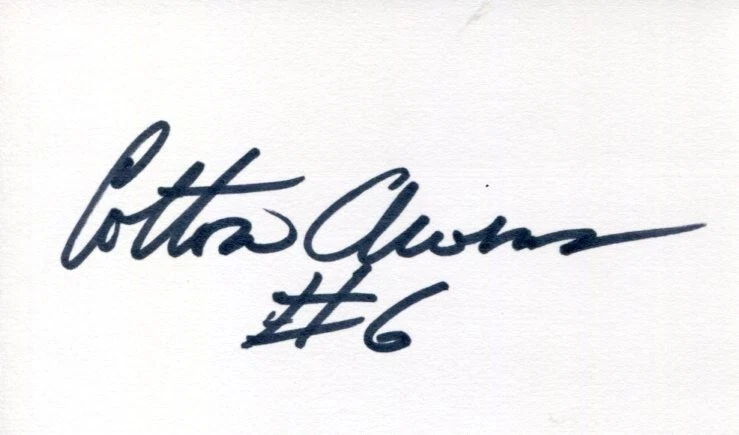 Cotton Owens
#6